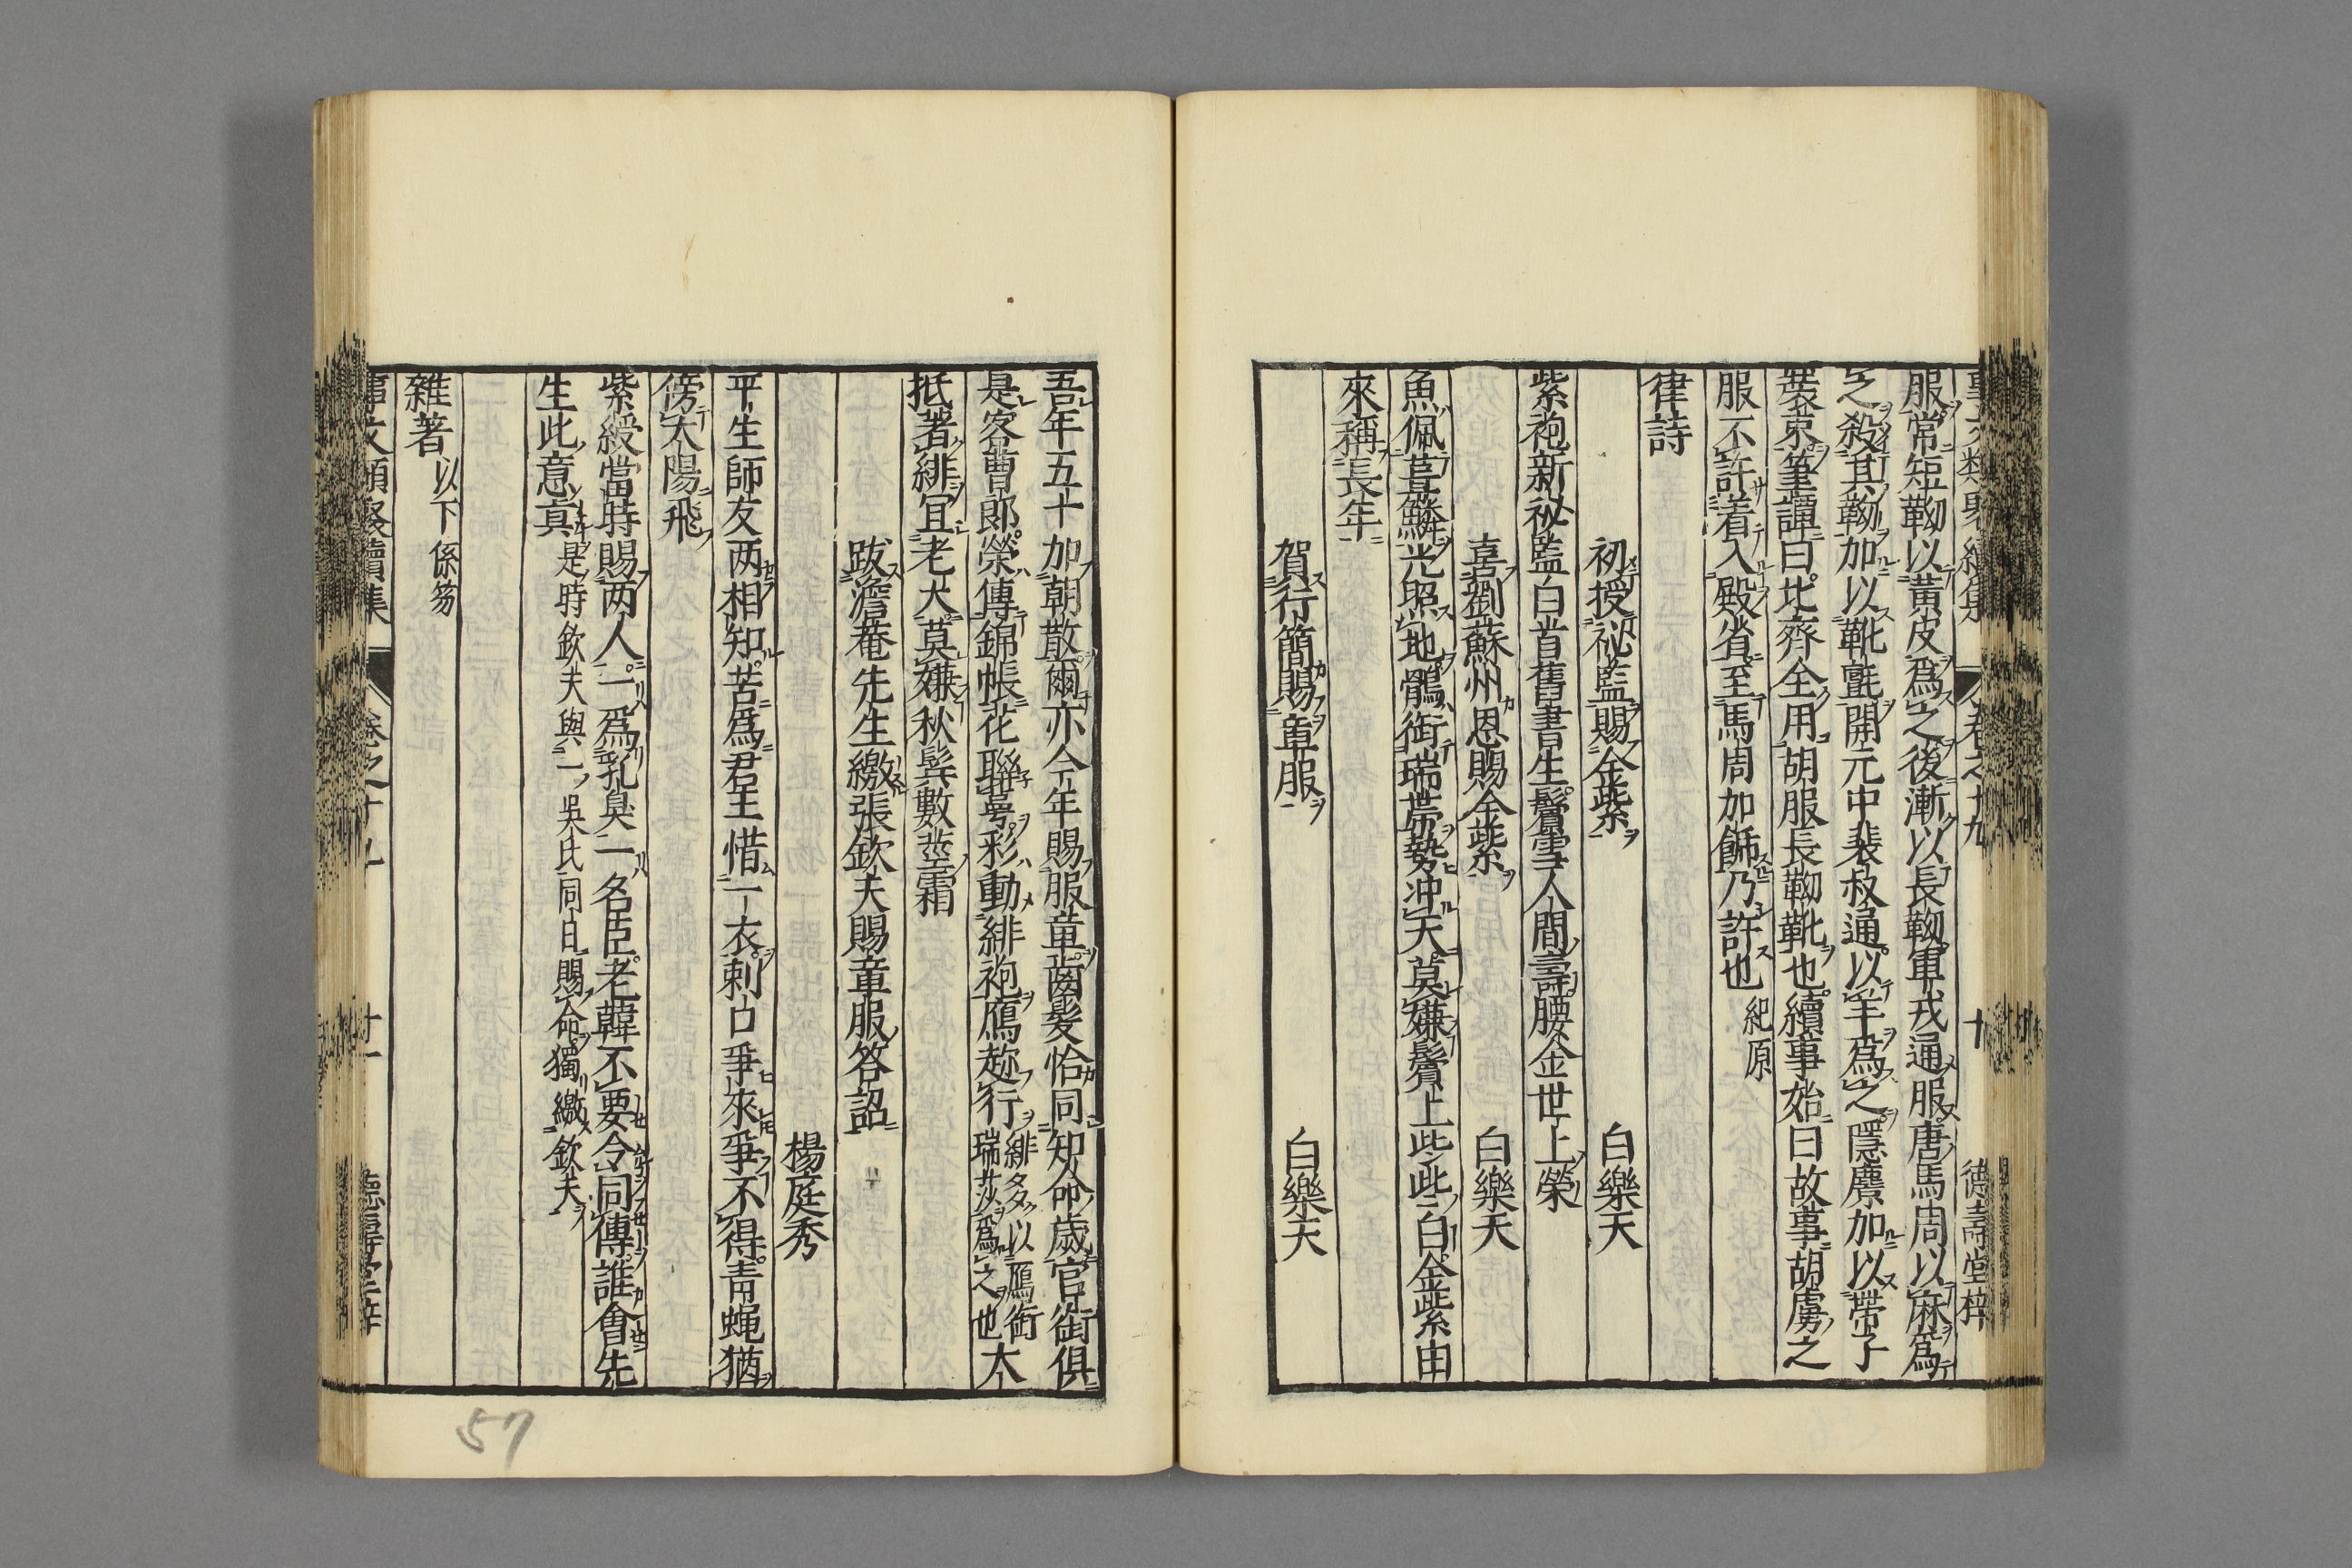 服常短靿以黃皮爲之後漸以長靿軍戎通服唐馬周以麻爲
之殺其靿加以靴氊開元中裴叔通以羊爲之隱麖加以帶子
裝束筆譚曰北齊全用胡服長靿靴也續事始曰故事胡虜之
服不許着入殿省至馬周加飾乃許也紀原
律詩
初授祕監賜金紫 白樂天
紫袍新祕監白首舊書生鬢雪人間壽腰金世上榮
喜劉蘇州恩賜金紫 白樂天
魚佩葺鱗光照地鶻銜瑞帶勢冲天莫嫌鬢上些些白金紫由
來稱長年
賀行簡賜章服 白樂天
吾年五十加朝散爾亦今年賜服章齒髮恰同知命歲官銜俱
是客曹郎榮傳錦帳花聯萼彩動緋袍鴈趂行緋多以鴈銜瑞莎爲之也大
抵著緋宜老大莫嫌秋鬂數莖霜
跋澹菴先生繳張欽夫賜章服答詔
楊庭秀
平生師友两相知苦爲君王惜一衣剌口爭來爭不得青蝿猶
傍太陽飛
紫綬當時賜两人一爲乳臭一名臣老韓不要令同傳誰會先
生此意真是時欽夫與一吳氏同日賜命獨繳欽夫
雜著以下係笏
事文類聚續集 卷之十九 廿一 德壽堂梓